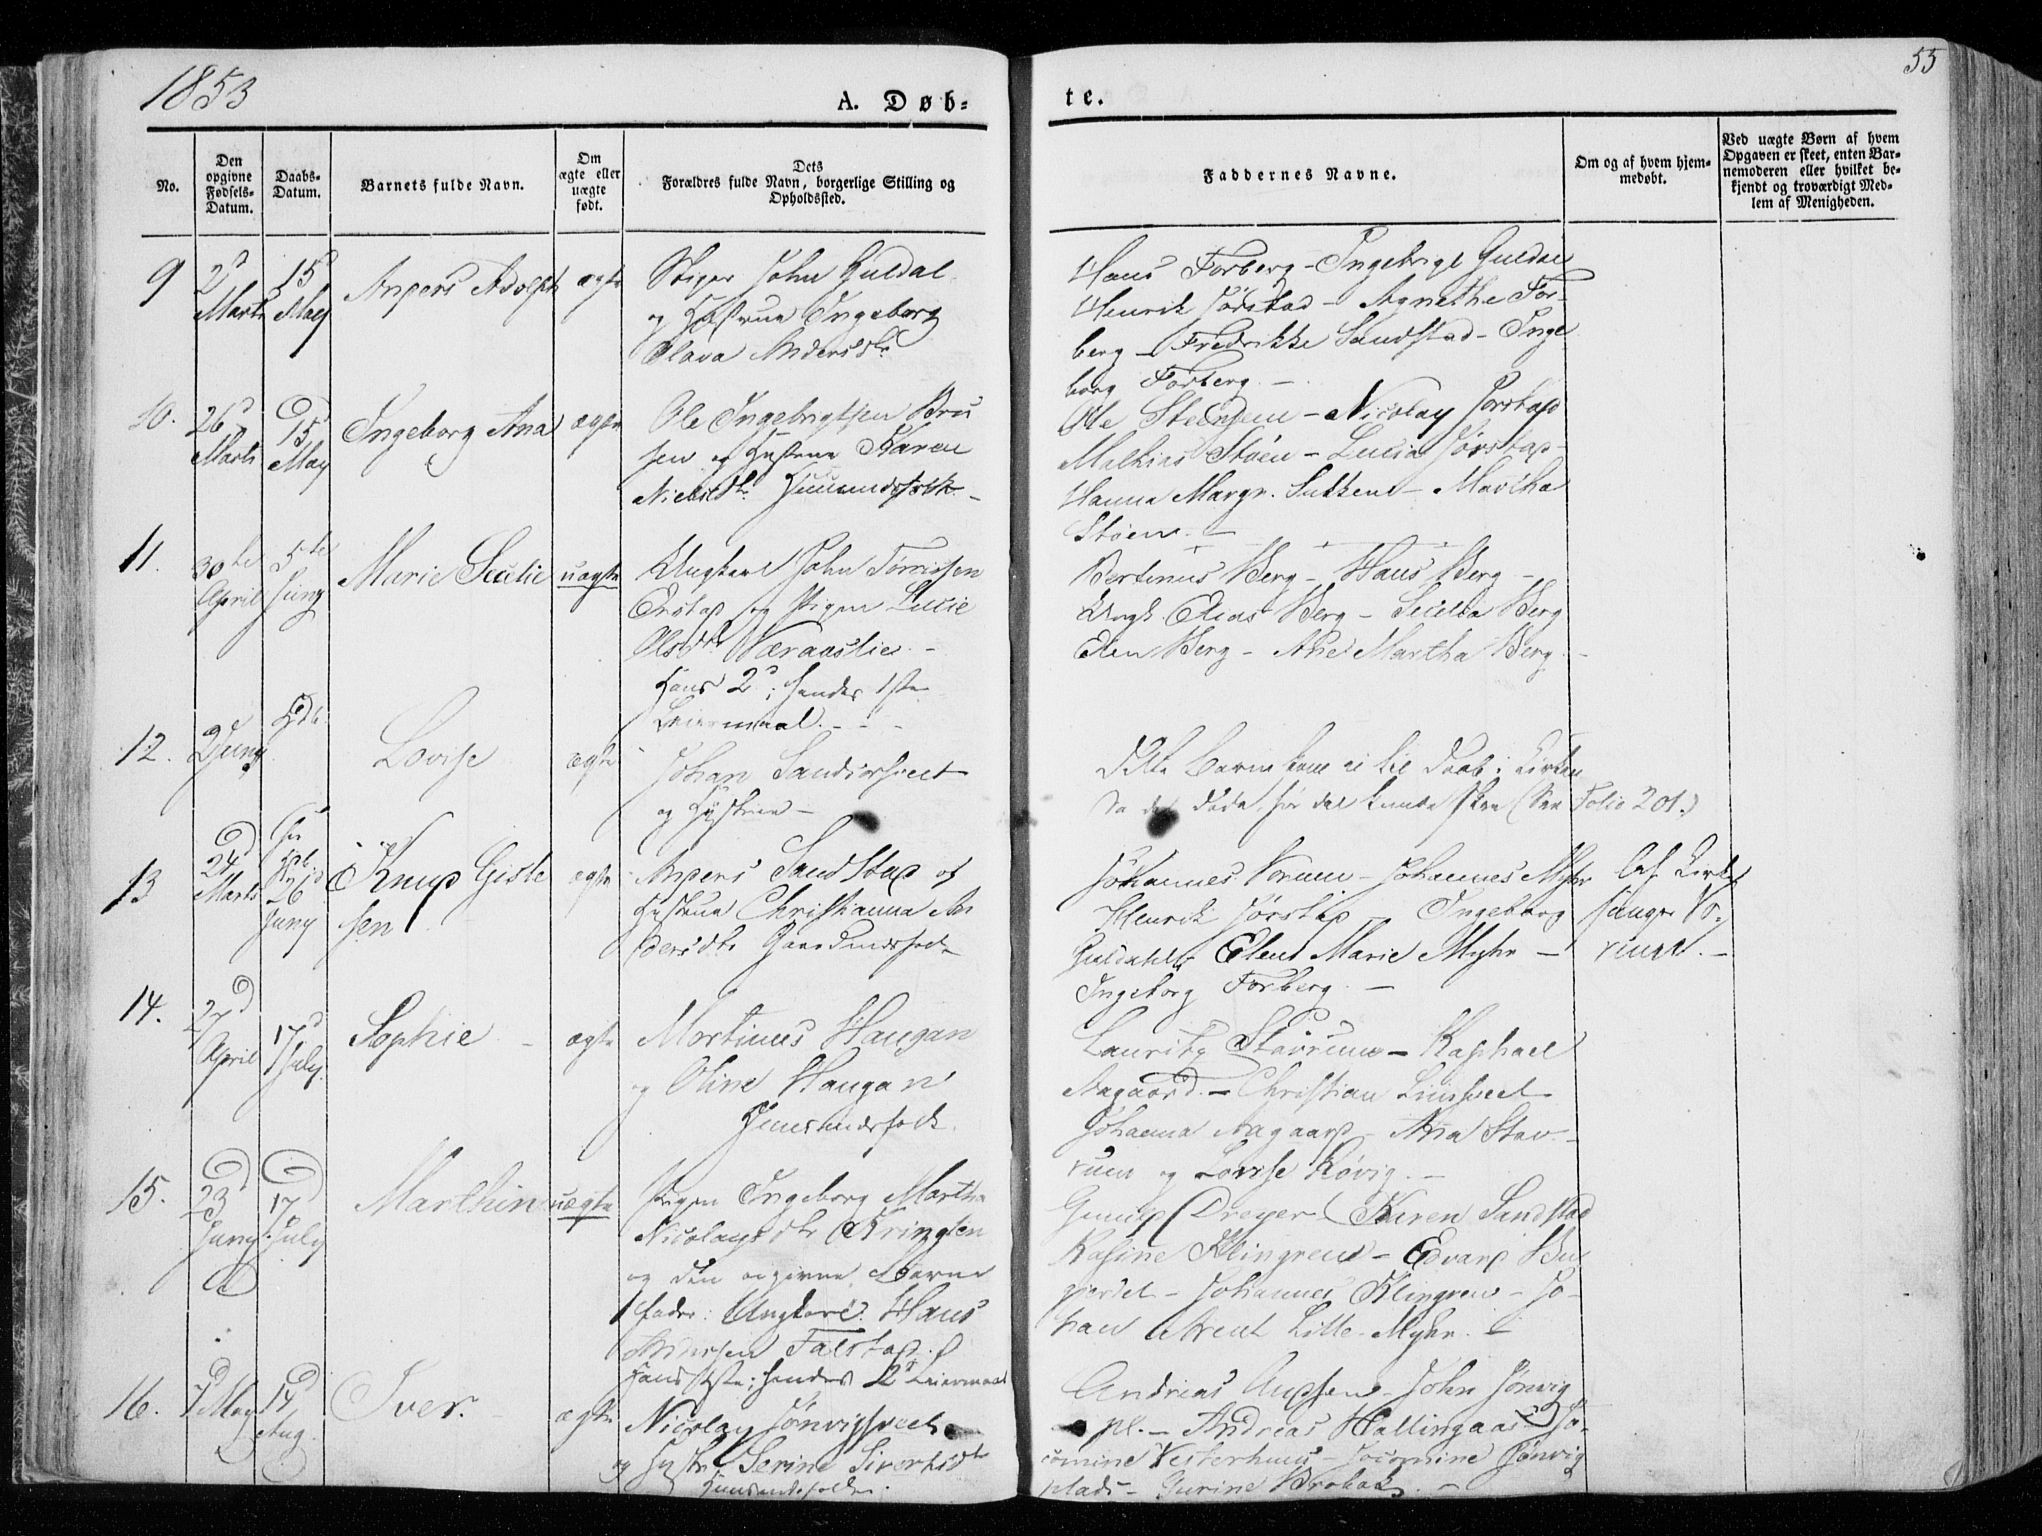 1853
A. Døb-
te.
55
No.
Den opgivne Fødsels-Datum.
Daabs-Datum.
Barnets fulde Navn.
Om ægte eller uægte født.
Dets
Forældres fulde Navn, borgerlige Stilling og
Opholdssted.
Faddernes Navne.
Om og af hvem hjem-
medøbt.
Ved uægte Børn af hvem
Opgaven er skeet, enten Bar-
nemoderen eller hvilket be-
kjendt og troværdigt Med-
lem af Menigheden.
9 2d Marts 15d May Anders Adolph ægte
John Guldal
og Hustrue Ingeborg
Olava Andersdtr
Hans Forberg - Ingebrigt Guldal
Henrik Jørstad - Agnethe For-
berg - Fredrikke Sandstad - Inge
borg Forberg. -
10. 26d Marts 15d May Ingeborg Ana ægte
Ole Ingebrigtsen Bru
sen og Hustrue Karen
Nielsdtr. Huusmandsfolk. -
Ole Steensen - Nicolay Jørstad
Mathias Støen - Lucia Jørstad
Hanna Margr. - Martha
Støen. -
11. 30te April 5te Juny Marie uægte
Ungkarl John Tørrissen
og Pigen Lucie
Olsdtr -
Hans 2d; hendes 1ste
Leiermaal. - -
Bertinus Berg - Hans Berg -
Ungk. Elias Berg - Berg
Elen Berg - Ane Martha Berg -
12. 2 Juny Hdb. Lovise ægte
Johan
og Hustrue -
Dette Barn kom ei til Daab i Kirken
da det døde før det kunde skee (See Folio 201.)
13 24d Marts 26 Juny Knud Giste
sen ægte
Anders Sandstad og
Hustrue Christianna An
dersdtr Gaardmandsfolk
Johannes - Johannes Myhr
Henrik Jørstad - Ingeborg
Guldahl, Elen Marie Myhr -
Ingeborg Forberg. -
af Kirke
sanger
14. 27d April 17d July Sophie - ægte
Martinus Haugan
og Oline Haugan
Huusmandsfolk.
Lauritz Stavrum - Raphael
Aagaard. - Christian
Johanna Aagaard - Ana Stav-
rum og Lovise Røvig. -
15. 23 Juny 17 July Marthin uægte
Pigen Ingeborg Martha
Nicolaysdtr
og den opgivne Barne
fader: Ungkarl Hans
Andersen Falstad.
Hans 1ste; hendes 2d Leiermaal
Dreyer - Karen Sandstad
Klingren - Edvard Bu
- Johannes Klingren - Jo-
han Arent Lille-Myhr. -
16. 7d May 14 Aug. Iver. - ægte
Nicolay
og Hustr. Serine Sivertsdtr
Huusmandsfolk.
Andreas - John
pl. - Andreas Hallingaas - Ja-
comine Vesterhuus - Jacomine
plads - Gurine Brobak. -